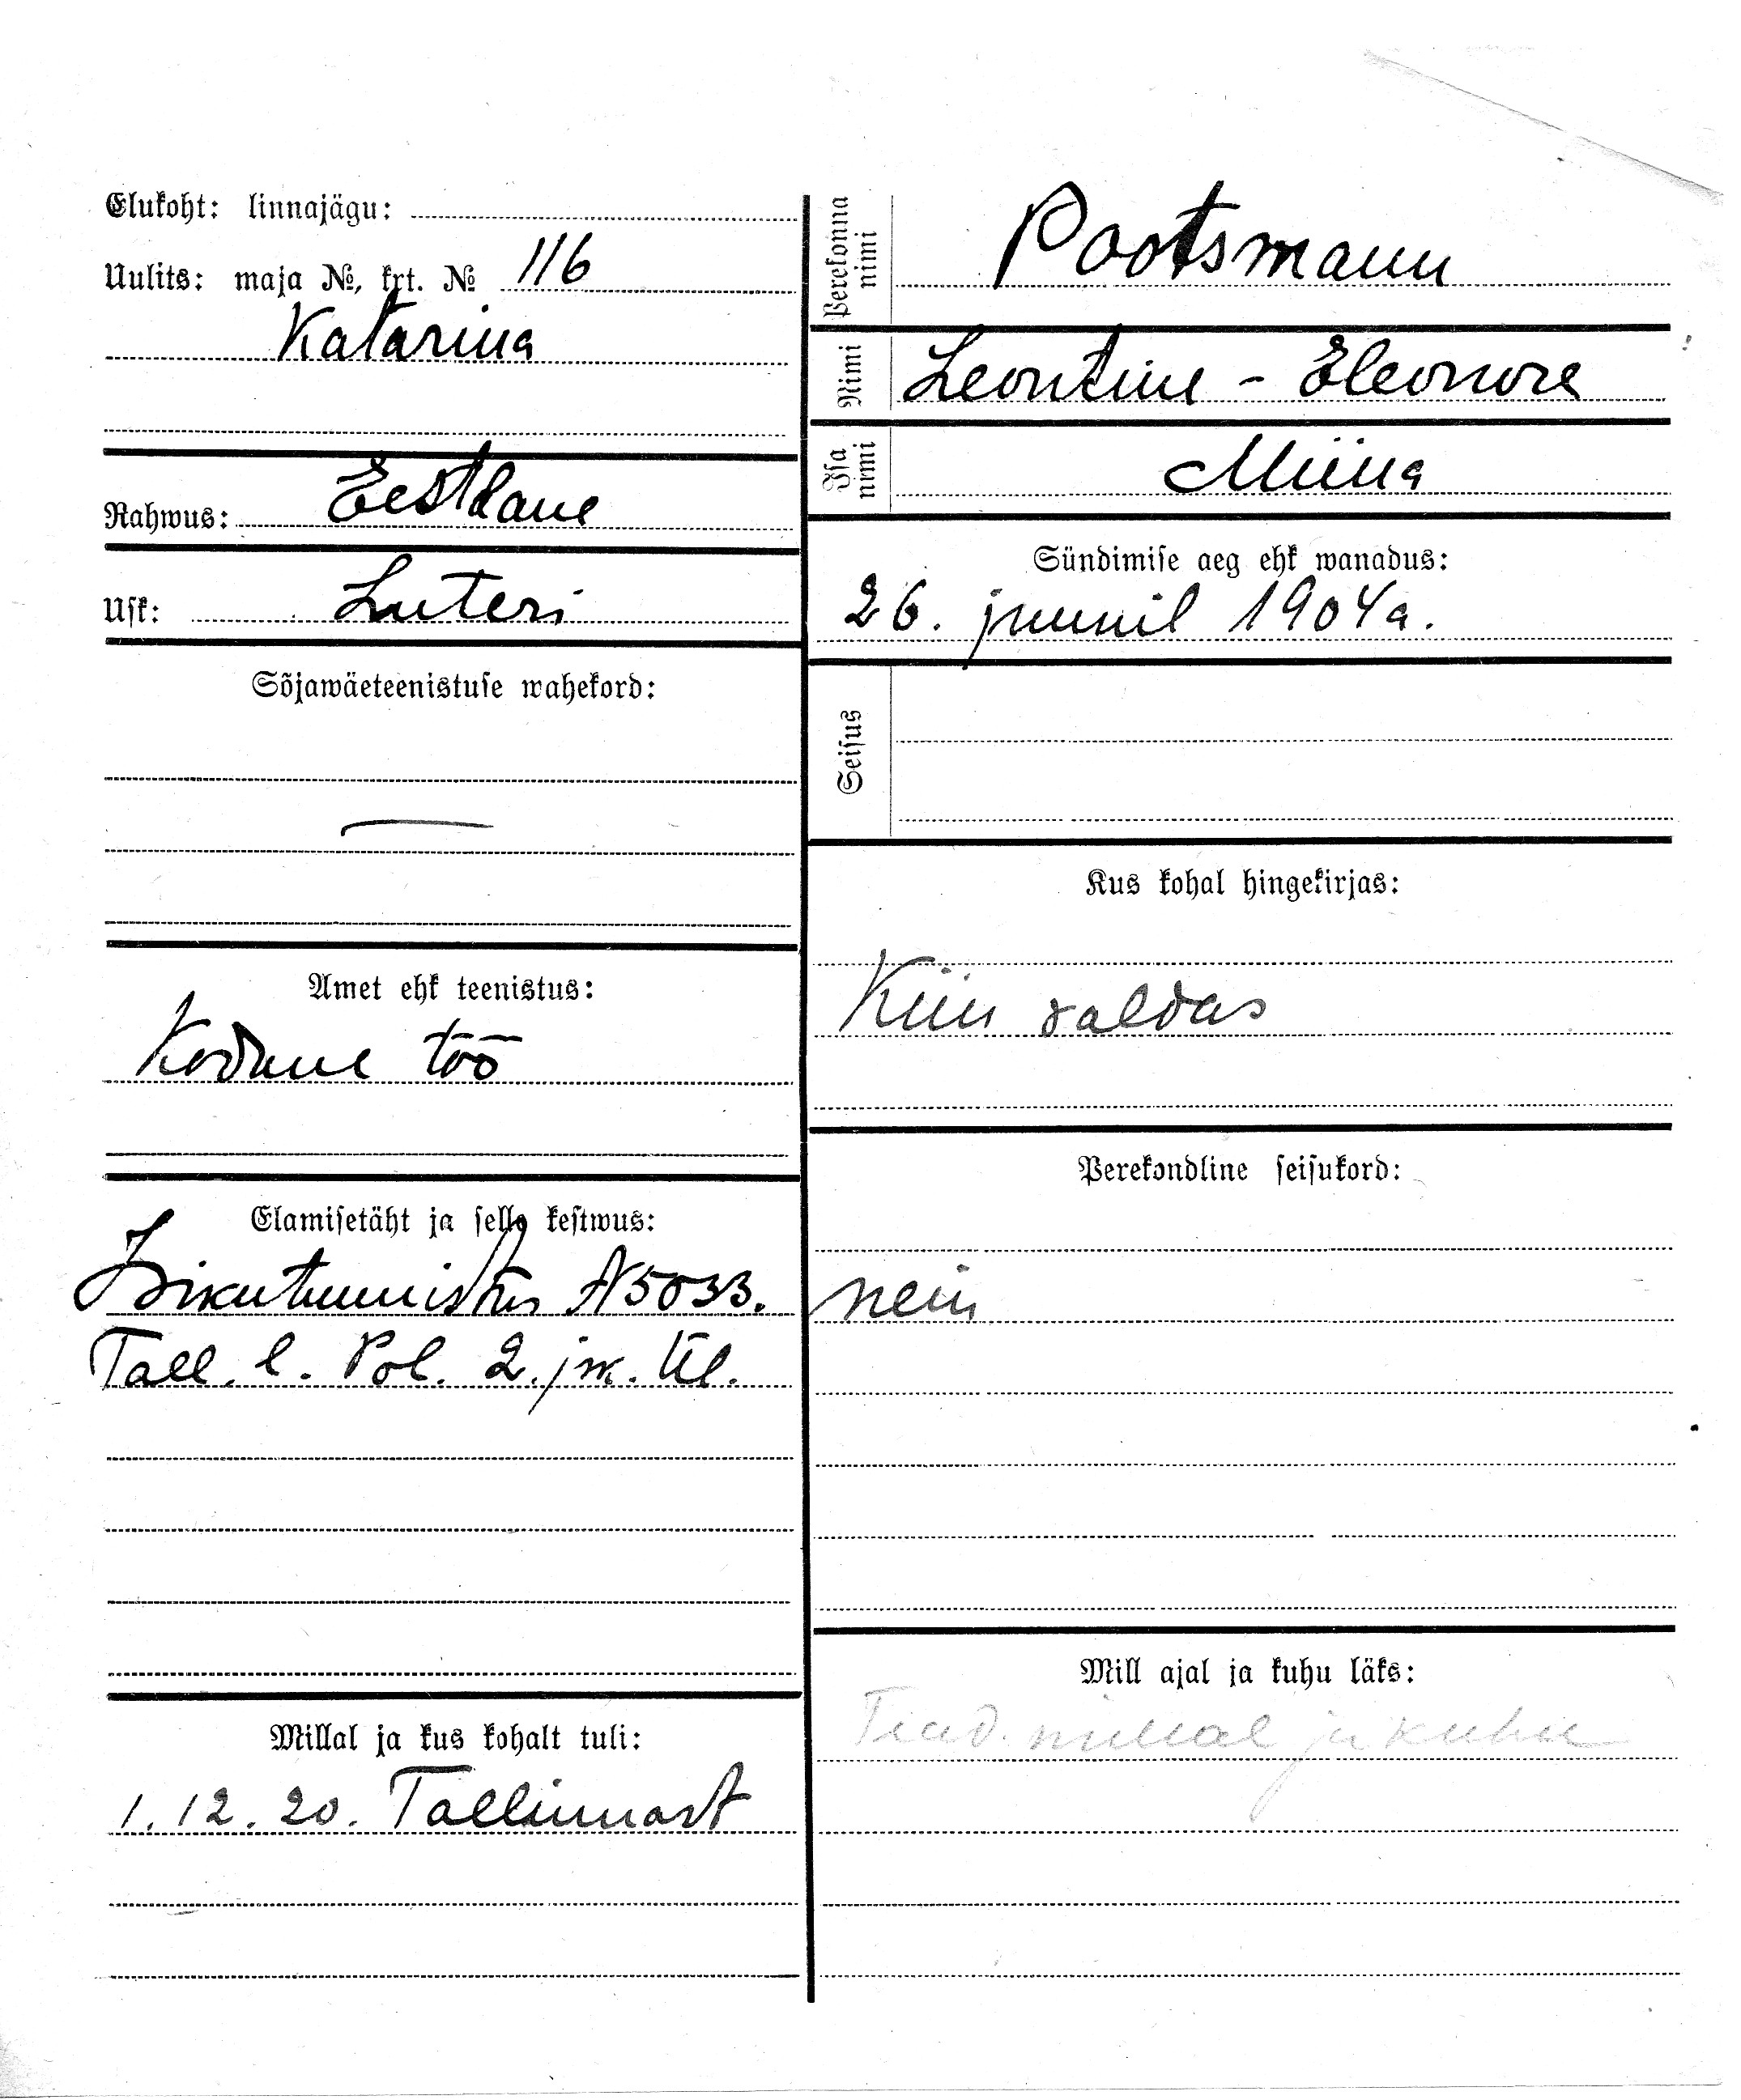 Elukoht: linnajägu:
Uulits: maja №, krt. № 116
Katarina
Rahwus: Eestlane
Usk: Luteri
Sõjawäeteenistuse wahekord:
—
Amet ehk teenistus:
Kodune töö
Elamisetäht ja selle kestwus:
Isikutunnistus N5033.
Tall. l. Pol. 2. jsk. ül.
Millal ja kus kohalt tuli:
1. 12. 20. Tallinnast
Perekonna nimi
Pootsmann
Nimi
Leontine - Eleonore
Isa nimi
Miina
Sündimise aeg ehk wanadus:
26. juunil 1904 a.
Seisus
Kus kohal hingekirjas:
Kiiu valdas
Perekondline seisukord:
neiu
Mill ajal ja kuhu läks:
Tead. millal ja kuhu